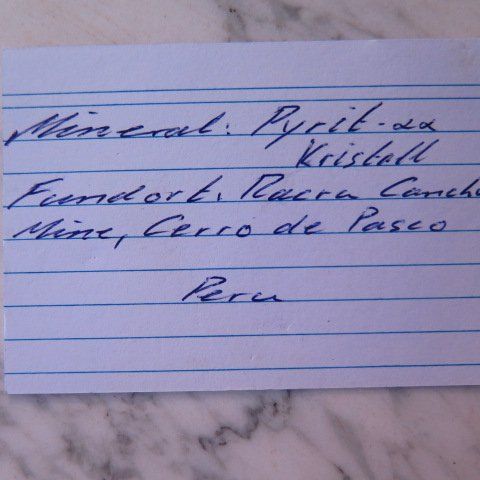 Mineral: Pyrit-xx
Kristall
Fundort: Racra Canch
Mine, Cerro de Pasco
Peru